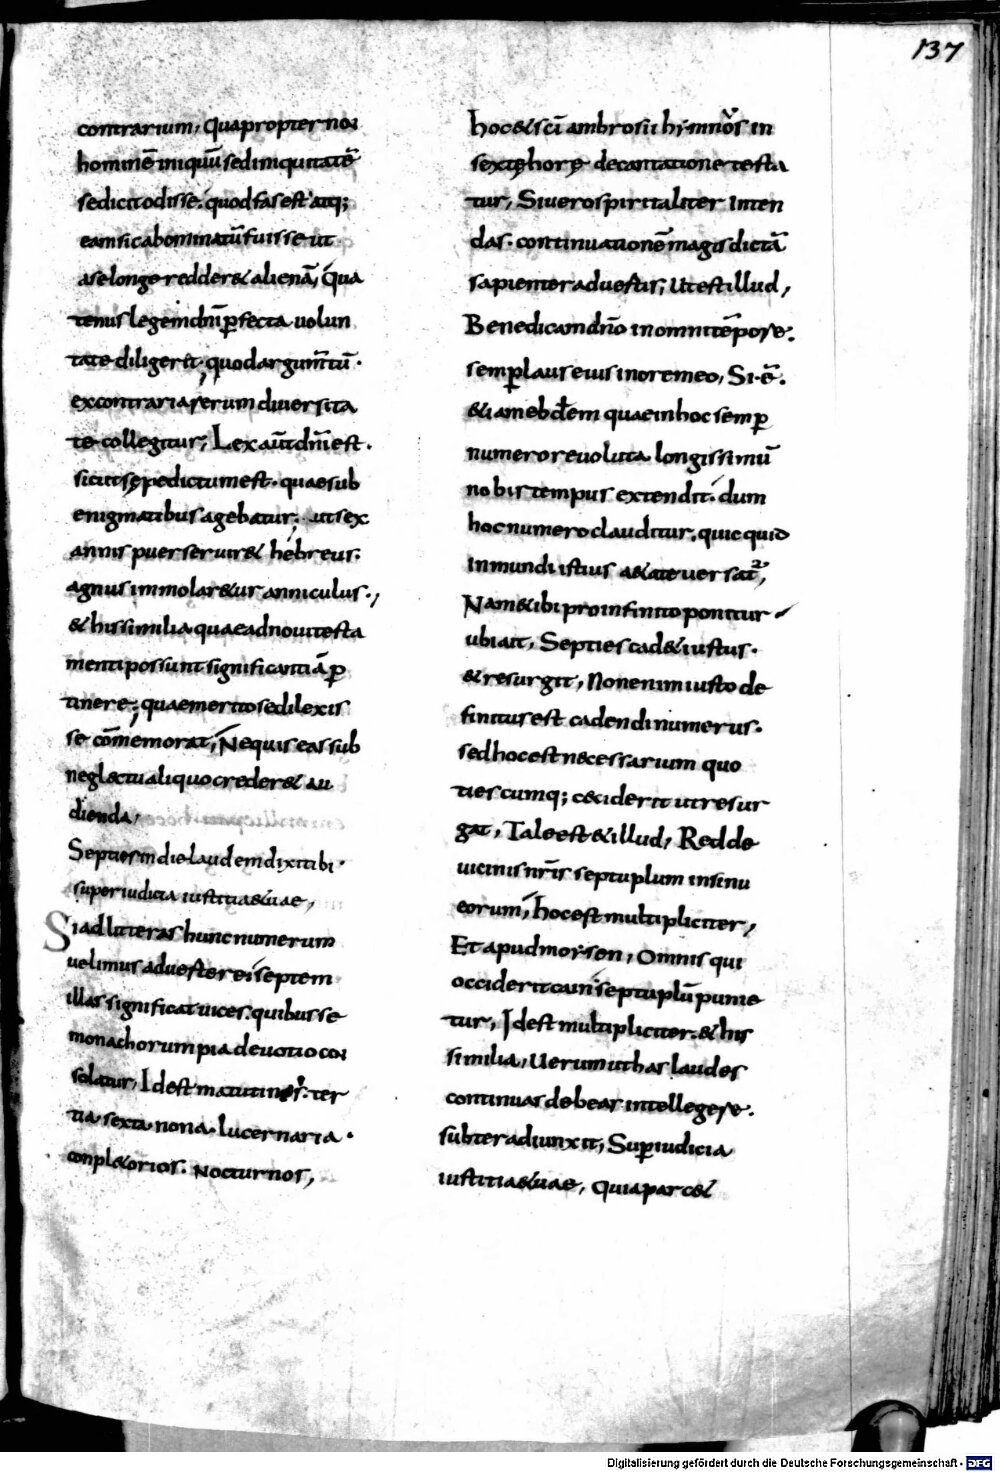 137
contrarium, quapropter non
hominē iniquū sed iniquitatē
se dicit odisse. quod fas est atq;
eam sic abominatū fuisse ut
a se longe redder& alienā, Qua
tenus legem dn̄i p̄fecta uolun
tate diligerit. quod argum̄tū.
ex contrariarerum diuersita
te collegitur, Lex aūt dn̄i est.
sicut sępe dictum est. quae sub
enigmatibus agebatur. ut sex
annis puer seruir& hebreus.
agnus immolar&ur anniculus.,
& his similia quae ad noui testa
menti possunt significantiā p
tinere; quae merito se dilexis
se cōmemorat, Nequis eas sub
neglectu aliquo creder& au
dienda,
Septies in die laudem dixi tibi.
super iudicia iustitiae tuae,
Si ad litteras hunc numerum
uelimus aduertere. septem
illas significat uices. quibus se
monachorum pia deuotio con
solatur, Idest matutinos. ter
tia sexta nona. lucernaria.
conpl&orios. nocturnos,
hoc & sc̄i ambrosii himnos in
sextę horę decantatione testa
tur, Siuero spiritaliter inten
das. continuationē magis dictā
sapienter aduertis; Ut est illud,
Benedicam dn̄o in omni tēpore.
semp laus eius in ore meo, Si.ē.
& iam ebdem quae in hoc semp
numero reuoluta longissimū
nobis tempus extendit. dum
hoc numero clauditur. quicquid
in mundi istius a&ate uersat,
Nam & ibi pro infinito ponitur
ubi ait, Septies cad& iustus.
& resurgit, Non enim iusto de
finitus est cadendi numerus.
sed hoc est necessarium quo
ties cumq; ceciderit ut resur
gat, Tale est & illud, Redde
uicinis nr̄is septuplum in sinu
eorum, hoc est multipliciter,
Et apud morsen, Omnis qui
occiderit cain septuplū punie
tur, Idest multipliciter. & his
similia, Uerum ut has laudes
continuas debeas intellegere.
subter adiunxit, Sup iudicia
iustitiae tuae, Quia parc&
Digitalisierung gefördert durch die Deutsche Forschungsgemeinschaft - DFG